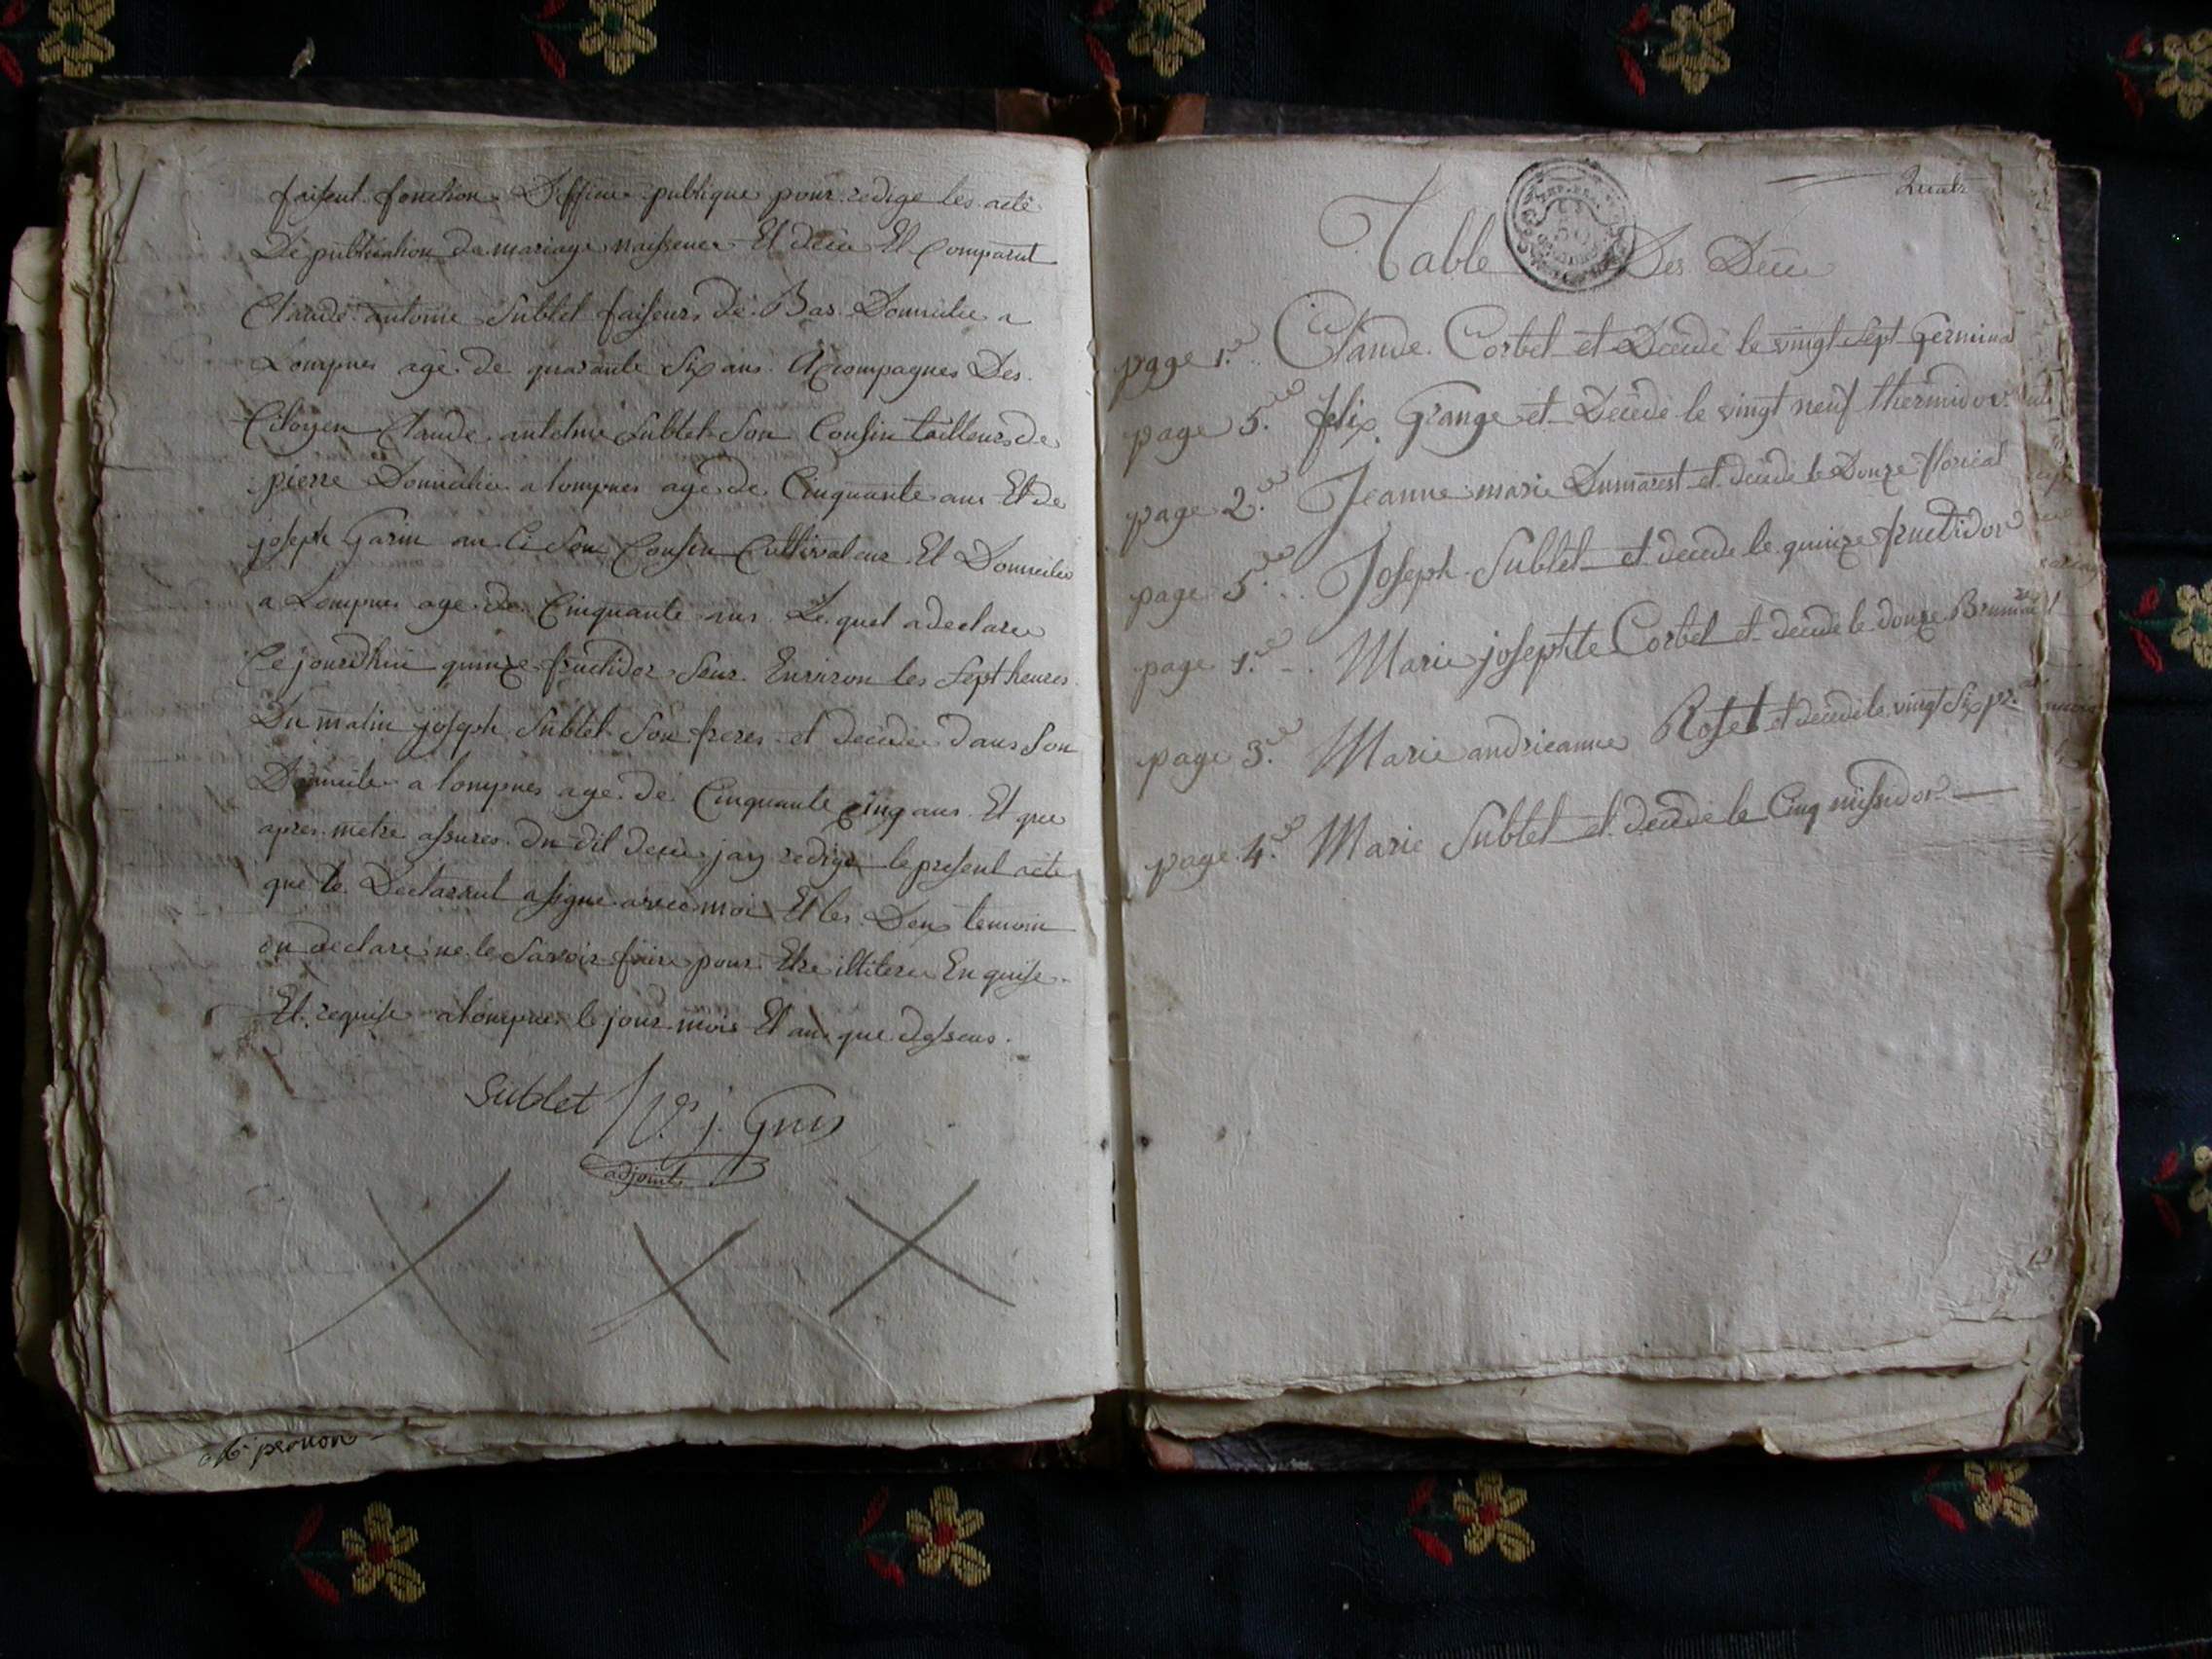 faisent fonction D'officier publique pour redige les acte
De publication de mariage naissence Et décè Et Comparut
Claude antoine Sublet faiseurs de Bas Domicilie a
Lompnes age de quarante Six ans. Acompagnes Des
Citoyen Claude antelme Sublet Son Cousin tailleurs de
pierre Domicilie a lompnes age de Cinquante ans Et de
joseph Garin au Ci Son Cousin Cultivateur Et Domicilie
a Lompnes age de Cinquante ans Le quel a declare
Ce jourdhui quinze fructidor Seur Environ les Sept heures
Du matin joseph Sublet Son freres et décédé dans Son
Domicile a lompnes age de Cinquante Cinq ans Et que
apres metre assures du dit décè jay redige le present acte
que le Declarant a signe avec moi Et les Deux temoin
on declare ne le Savoir faire pour Etre illitere En quise
Et requise a lompnes le jour mois Et an que dessus.
Sublet j. Gros
adjoint
pernon
Table Des Décè
page 1.re Claude Corbet et Décédé le vingt Sept Germinal
page 5.me felix Grange et Décédé le vingt neuf thermidor
page 2.me Jeanne marie Dumarest et décédé le Douze floreal
page 5.me Joseph Sublet et décédé le quinze fructidor
page 1.re Marie josephte Corbet et décédé le douze Brumaire
page 3.me Marie andrieanne Roset et décédé le vingt Six pr.al
page 4.e Marie Sublet et décédé le Cinq missidor